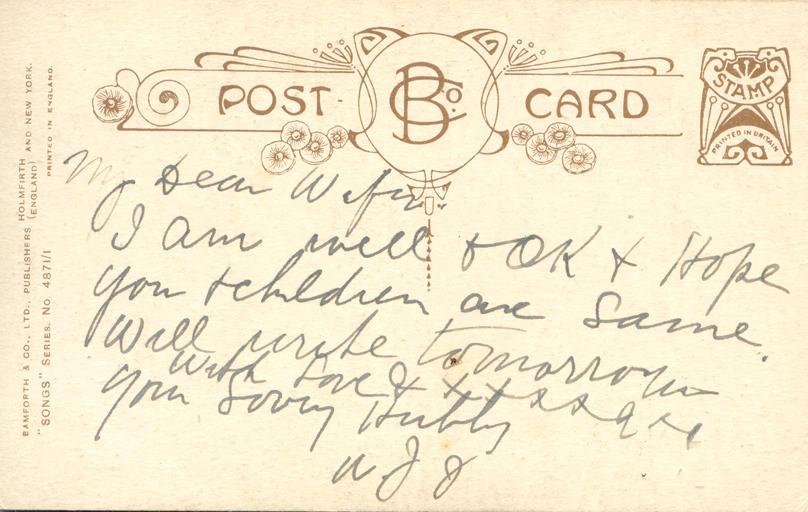 BAMFORTH & CO., LTD., PUBLISHERS HOLMFIRTH AND NEW YORK.
(ENGLAND)
PRINTED IN ENGLAND.
"SONGS" SERIES. No. 4871/1
POST CARD
B Co.
STAMP
PRINTED IN BRITAIN
My Dear Wife
I am well & OK & Hope
you & children are Same.
Will write tomorrow
With Love & x x x x
your Loving Hubby
W J